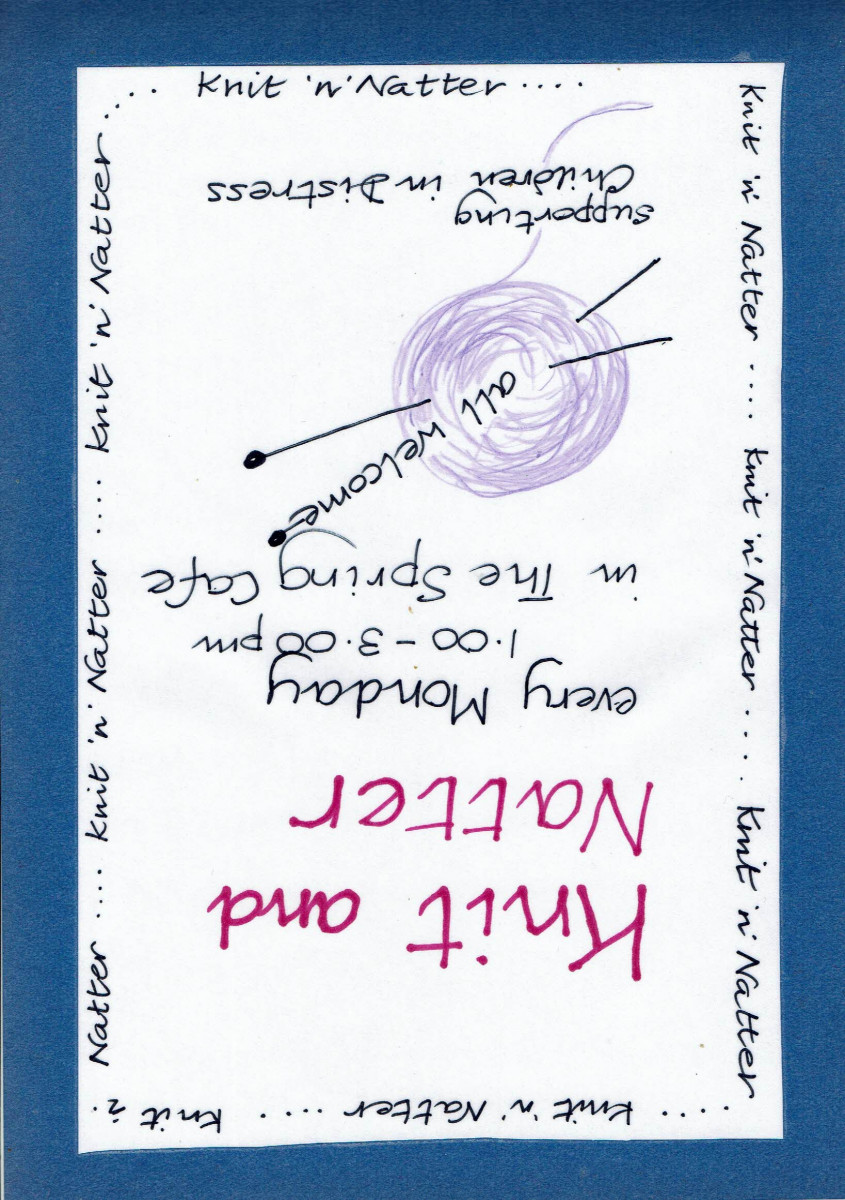 Knit and
Natter
every Monday
1.00 - 3.00 pm
in The Spring Cafe
all welcome
Supporting
Children in Distress
Knit 'n' Natter .... Knit
Natter .... Knit 'n' Natter .... Knit 'n' Natter .... Knit 'n' Natter ....
Knit 'n' Natter ....
Knit 'n' Natter .... Knit 'n' Natter .... Knit 'n' Natter